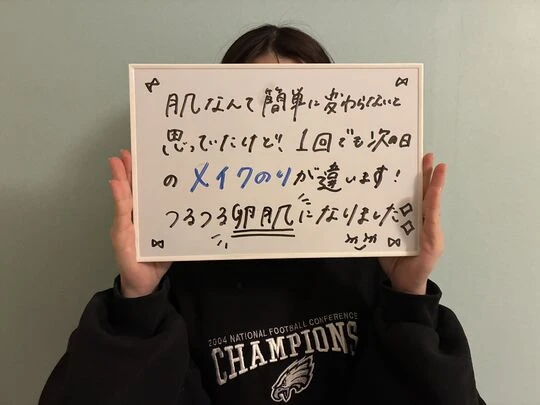 肌なんて簡単に変わらないと
思っていたけど、1回でも次の日
のメイクのりが違います!
つるつる卵肌になりました
2004 NATIONAL FOOTBALL CONFERENCE
CHAMPIONS